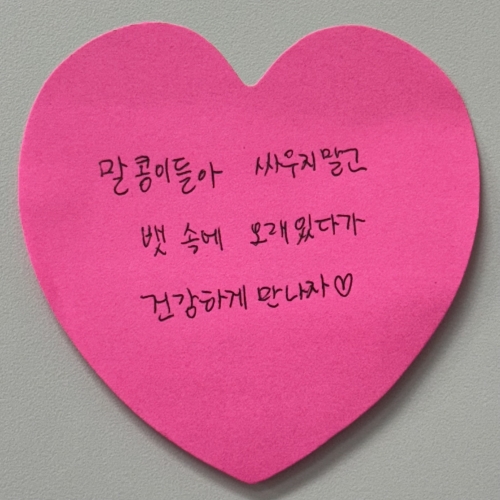 말콩이들아 싸우지말고
뱃 속에 오래있다가
건강하게 만나자♡